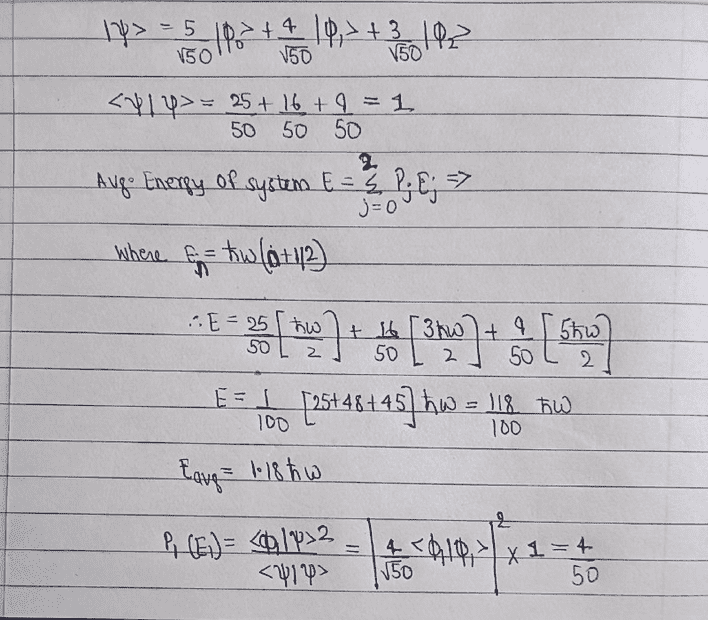 |ψ> = 5/√50 |φ₀> + 4/√50 |φ₁> + 3/√50 |φ₂>
<ψ|ψ> = 25/50 + 16/50 + 9/50 = 1
Avg. Energy of system E = Σ_{j=0}^{2} Pⱼ Eⱼ ⇒
where Eₙ = ħω(n+1/2)
∴ E = 25/50 [ħω/2] + 16/50 [3ħω/2] + 9/50 [5ħω/2]
E = 1/100 [25+48+45] ħω = 118/100 ħω
Eavg = 1.18 ħω
P₁(E₁) = <φ₁|ψ>2/<ψ|ψ> = |4/√50 <φ₁|φ₁>|² × 1 = 4/50